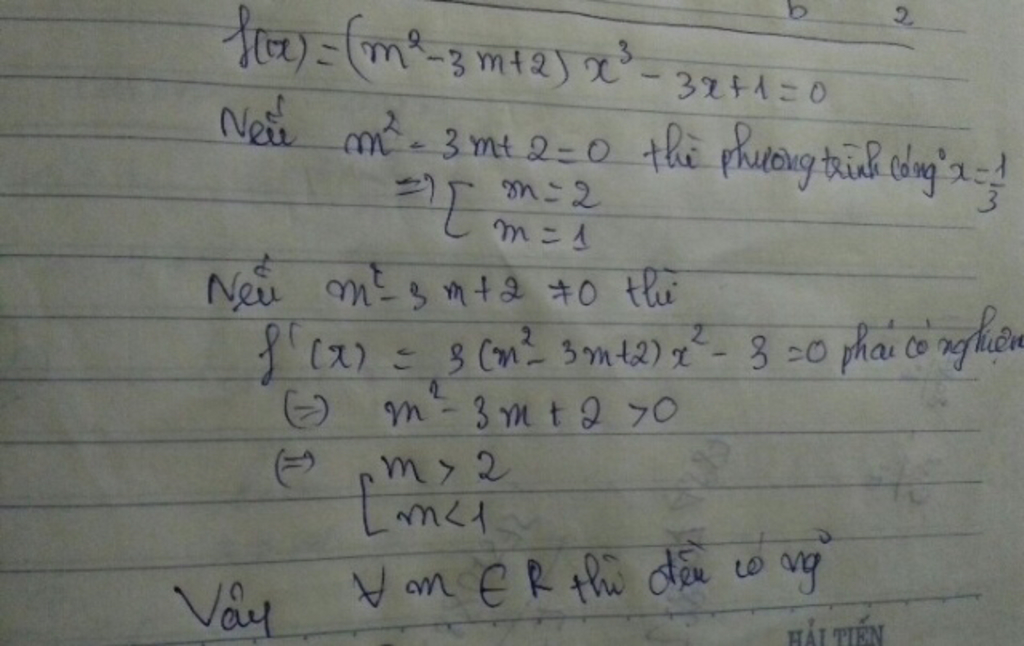 b 2
f(x) = (m² - 3m+2) x³ - 3x+1 = 0
Nếu m² - 3m+2 = 0 thì phương trình có ngº x = 1/3
=> [ m = 2
m = 1
Nếu m² - 3m+2 ≠ 0 thì
f'(x) = 3(m² - 3m+2)x² - 3 = 0 phải có nghiệm
(=) m² - 3m + 2 > 0
(=) [ m > 2
m < 1
Vậy ∀ m ∈ R thì đều có ngº
HẢI TIẾN